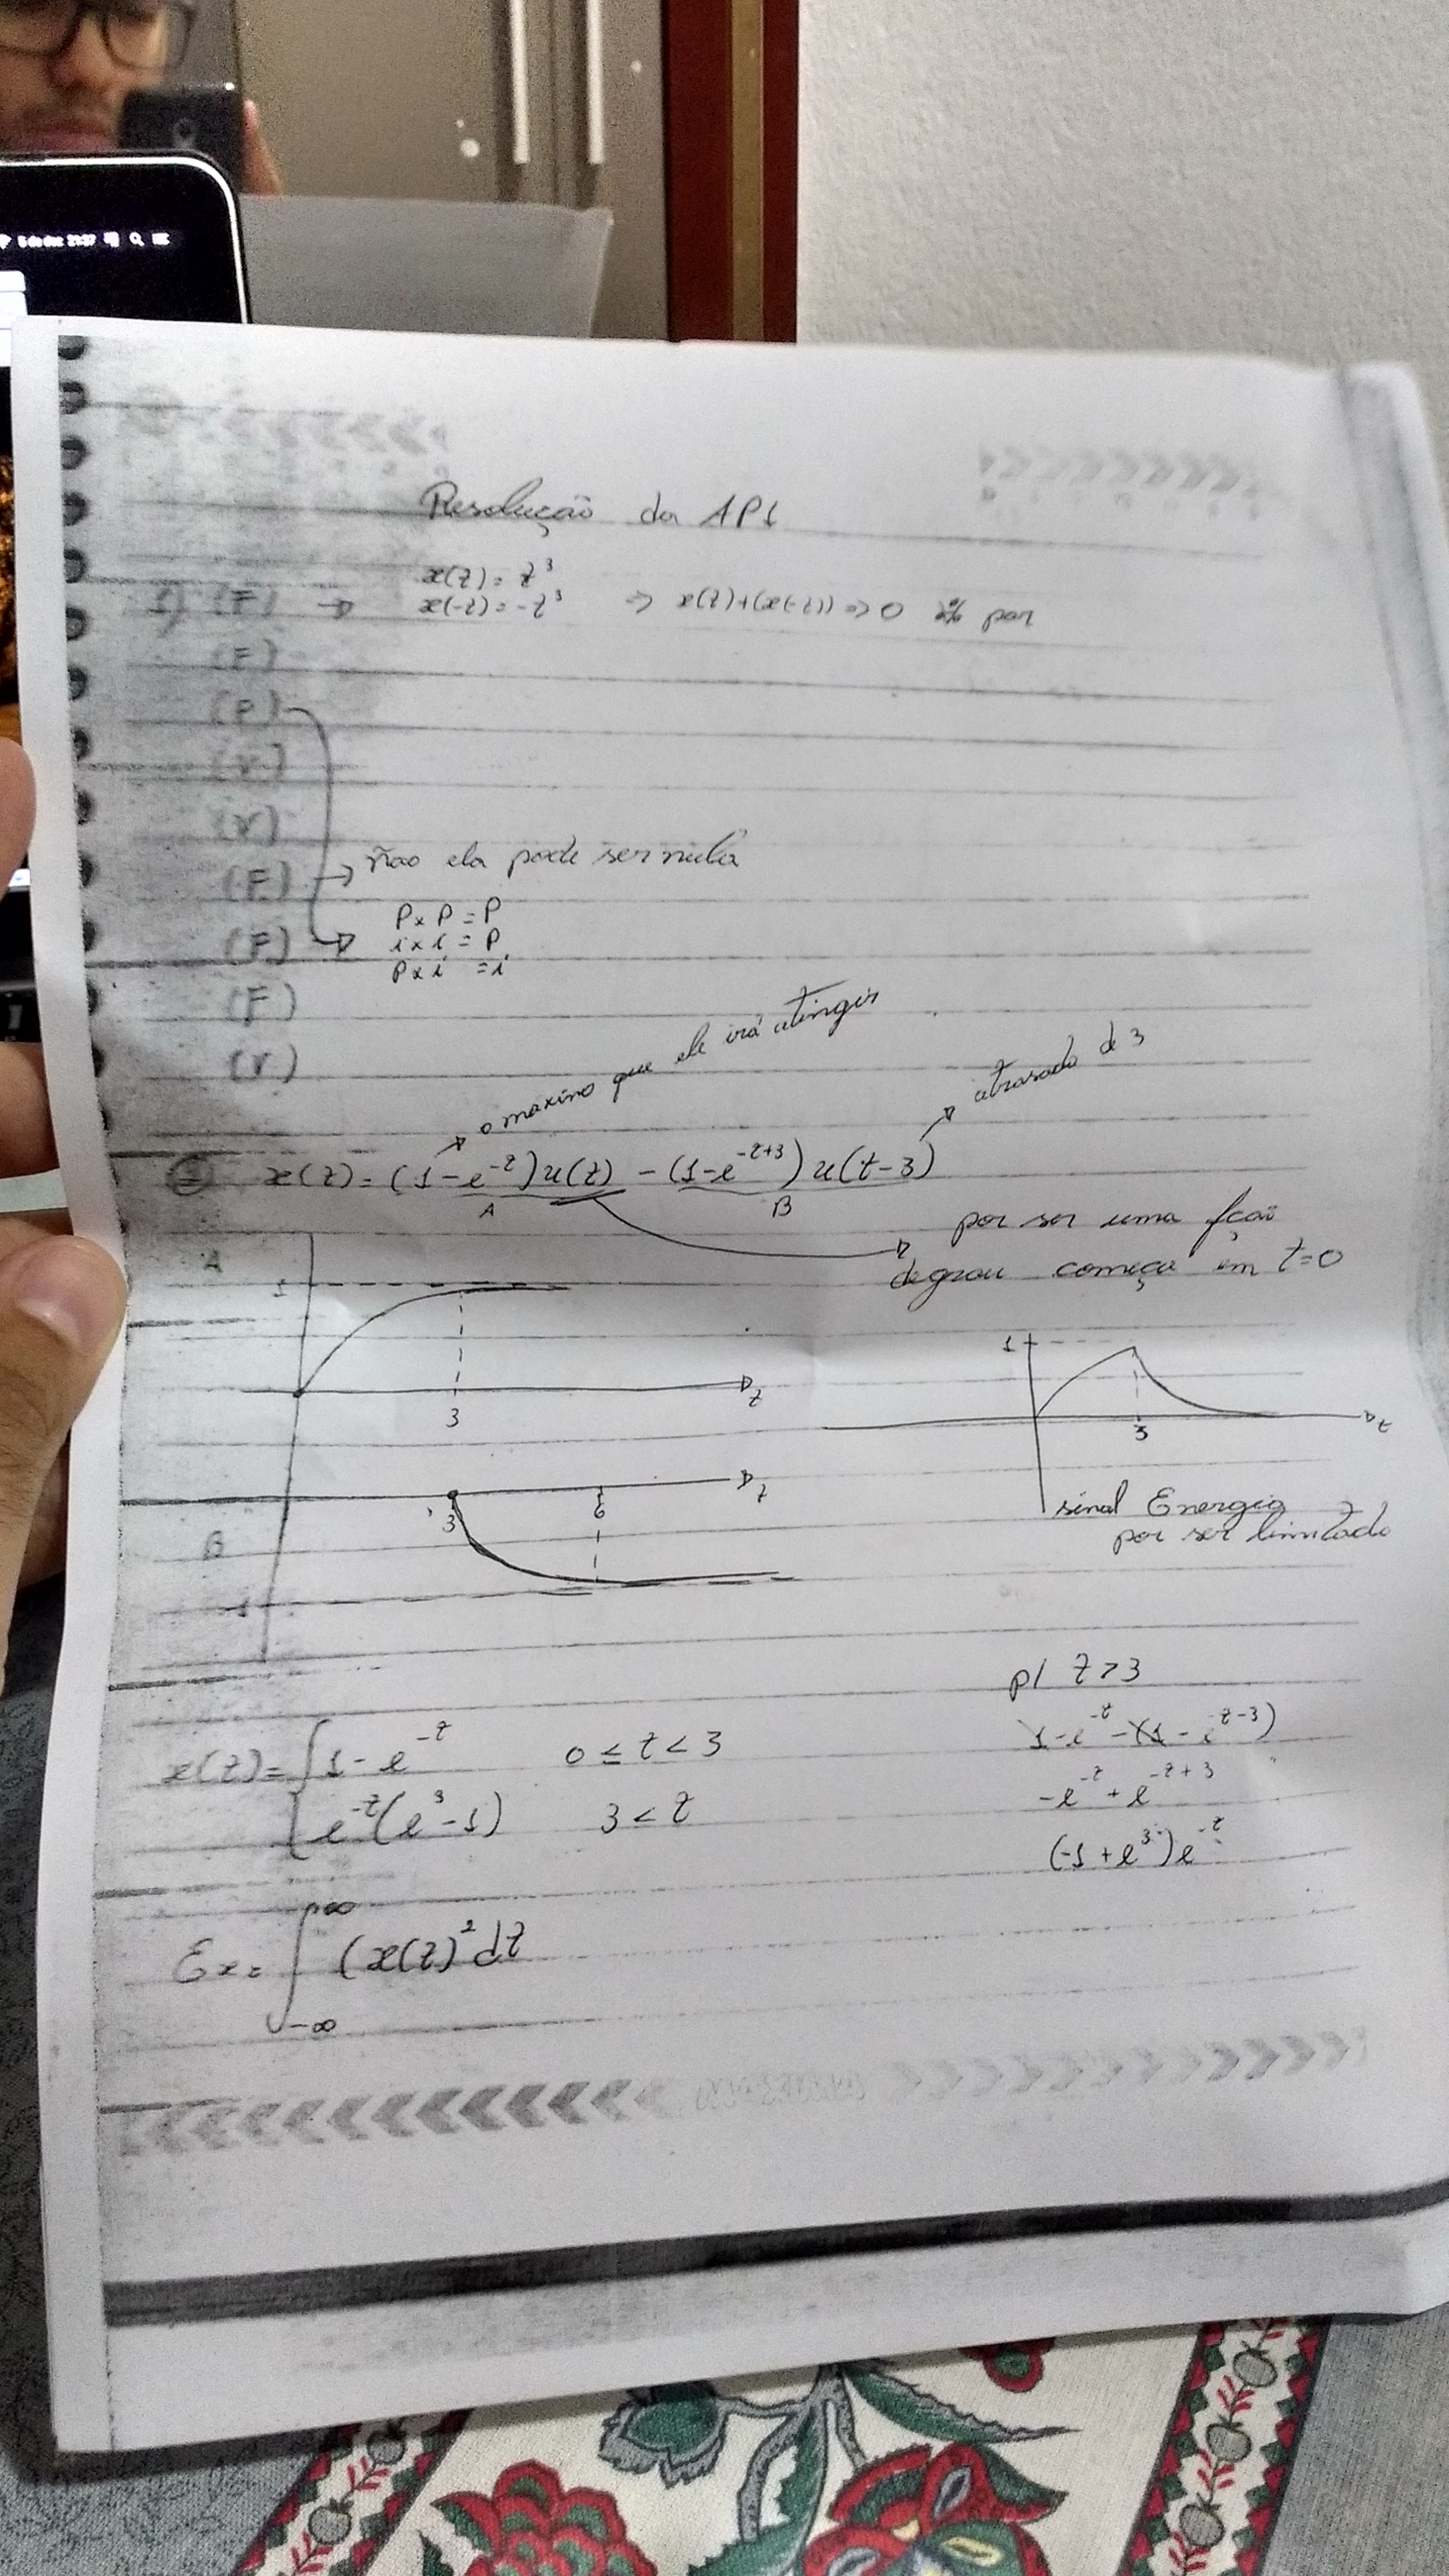 5 de dez 21:37
Resolução da AP1
x(t) = t³
1) (F) → x(-t) = -t³ ⇒ x(t)+(x(-t)) ⇒ 0 ñ é par
(F)
(F)
(V)
(V)
(F) → não ela pode ser nula
P x P = P
(F) → i x i = P
P x i = i
(F)
(V)
→ o maximo que ele irá atingir
→ atrasado de 3
2 x(t) = (1-e^{-t})u(t) - (1-e^{-t+3})u(t-3)
A B
por ser uma fção
degrau começa em t=0
A
1
3 t
1
3 t
3 6 t
B
-1
sinal Energia
por ser limitado
p/ t > 3
x(t) = { 1 - e^{-t} 0 ≤ t < 3
1-e^{-t} - (1 - e^{t-3})
e^{-t}(e³-1) 3 < t
-e^{-t} + e^{-t+3}
(-1 + e³)e^{-t}
Ex = ∫_{-∞}^{∞} (x(t)² dt